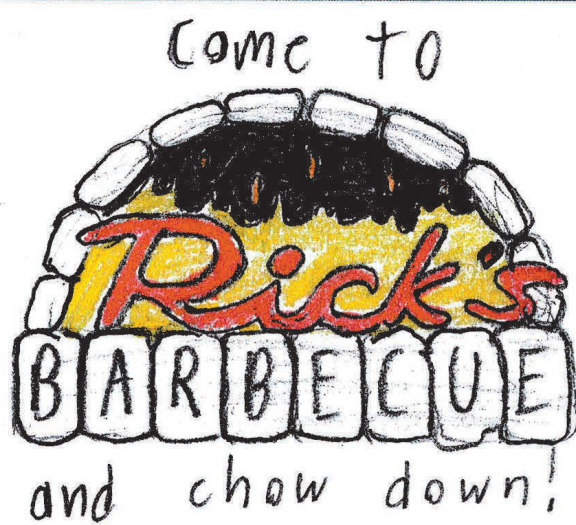 Come to
Rick's
BARBECUE
and chow down!